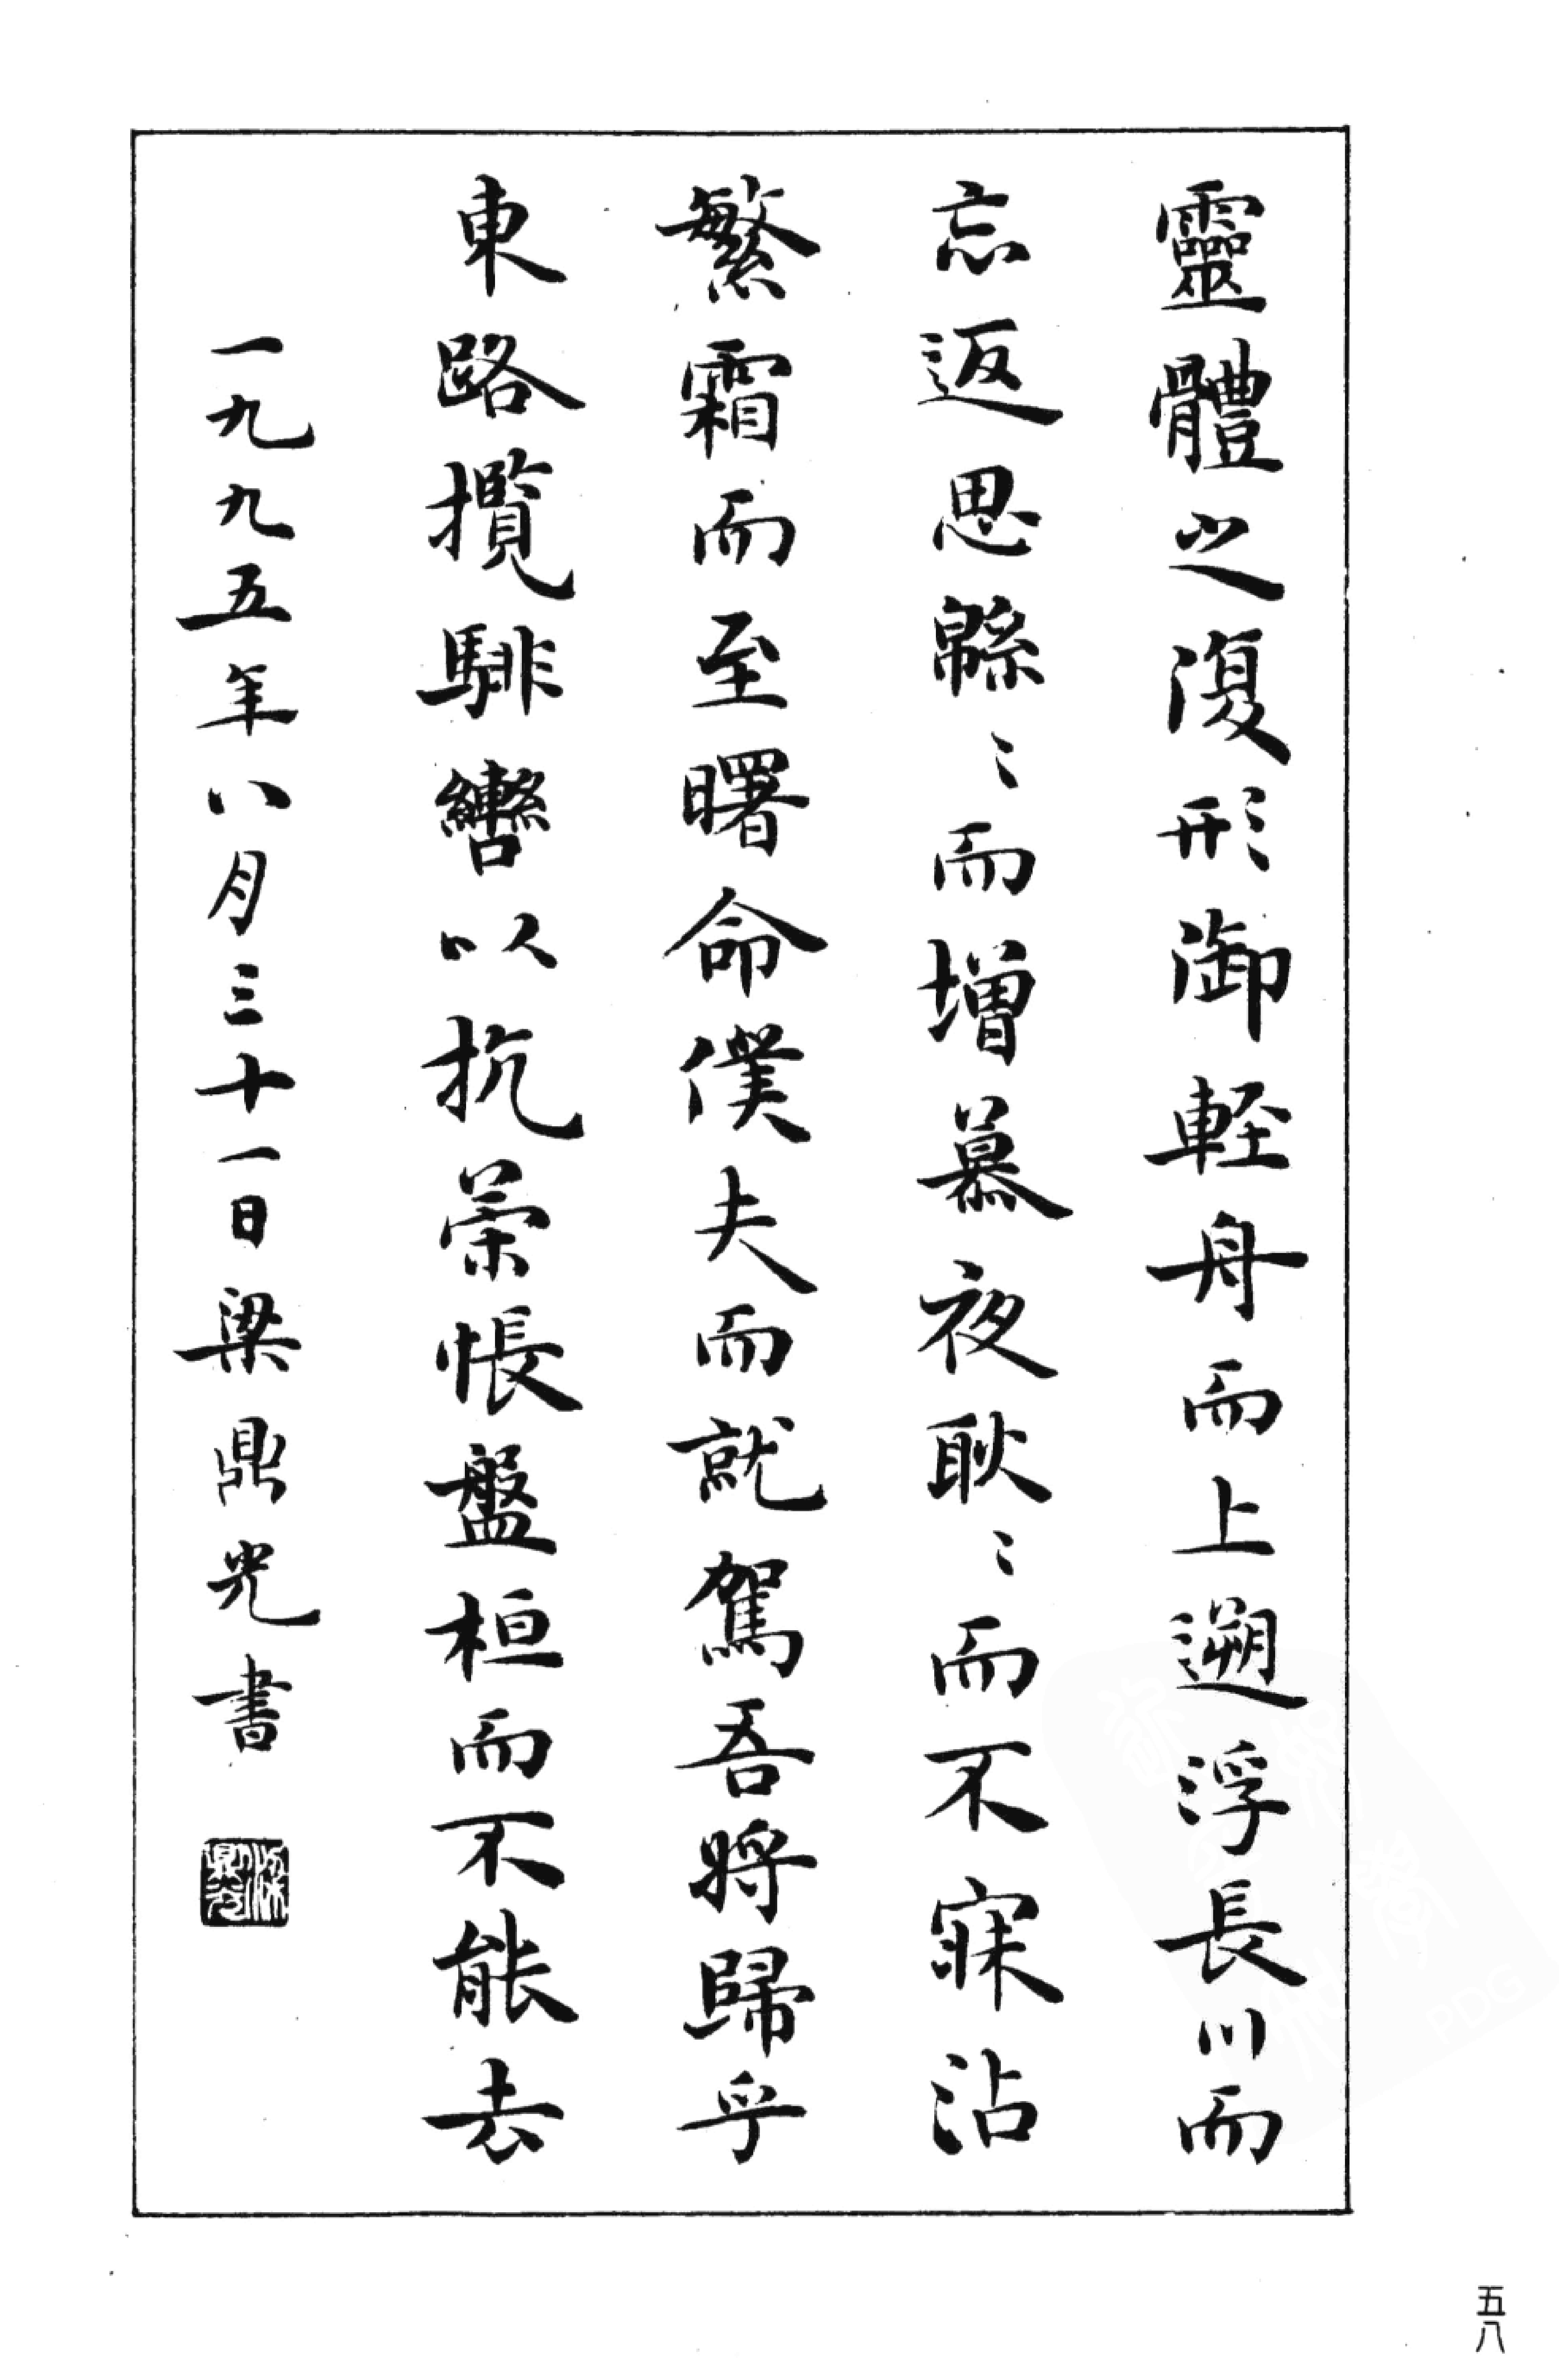 靈體之復形御輕舟而上遡浮長川而
忘返思緜〻而增慕夜耿〻而不寐沾
繁霜而至曙命僕夫而就駕吾將歸乎
東路攬騑轡以抗策悵盤桓而不能去
一九九五年八月三十一日梁鼎光書
梁鼎光
五八